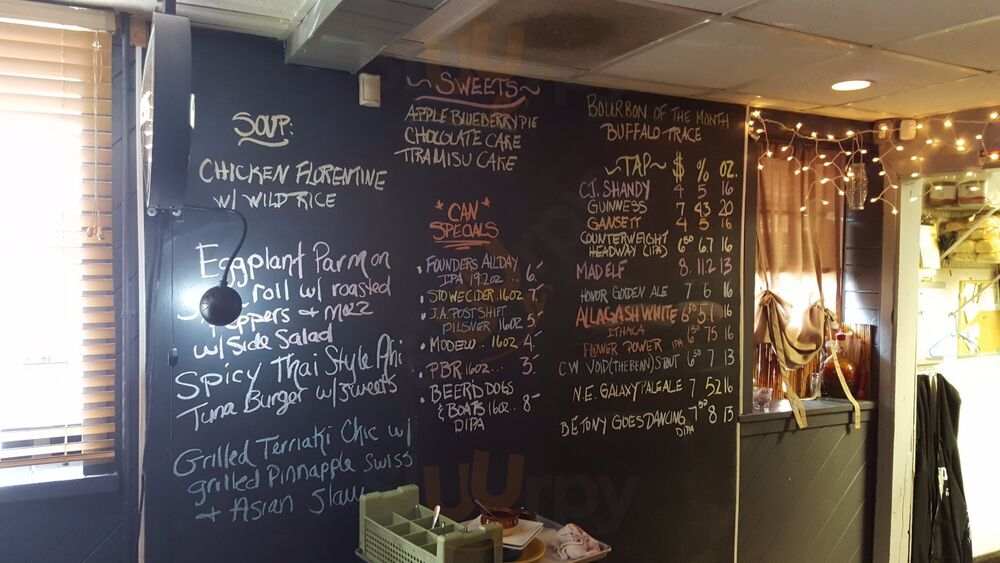 SOUP:
CHICKEN FLORENTINE
W/ WILD RICE
Eggplant Parm on
roll w/ roasted
Peppers + Mozz
w/ Side Salad
Spicy Thai Style Ahi
Tuna Burger w/ sweets
Grilled Terriaki Chic w/
grilled Pinnapple Swiss
+ Asian Slaw
~SWEETS~
APPLE BLUEBERRY PIE
CHOCOLATE CAKE
TIRAMISU CAKE
"CAN
SPECIALS"
• FOUNDERS ALL DAY
IPA 19.2oz.. 6.-
• STOWE CIDER. 16oz 7.-
• J.A. POST SHIFT
PILSNER 16oz 5.-
• MODELO.. 16oz 4.-
• PBR 16oz... 3.-
• BEER'D DOGS
& BOATS 16oz.. 8-
DIPA
BOURBON OF THE MONTH
BUFFALO TRACE
~TAP~ $ % OZ.
C.J. SHANDY 4 5 16
GUINNESS 7 43 20
GANSETT 4 5 16
COUNTERWEIGHT
HEADWAY (IPA) 6.50 6.7 16
MAD ELF 8. 11.2 13
HONOR GOLDEN ALE 7 6 16
ALLAGASH WHITE 6.50 5.1 16
ITHACA
FLOWER POWER IPA 6.50 75 16
C.W. VOID (THE BEAN) STOUT 6.50 7 13
N.E. GALAXY PALE ALE 7 52 16
BETONY GOES DANCING 7.50 8 13
DIPA
uurpy